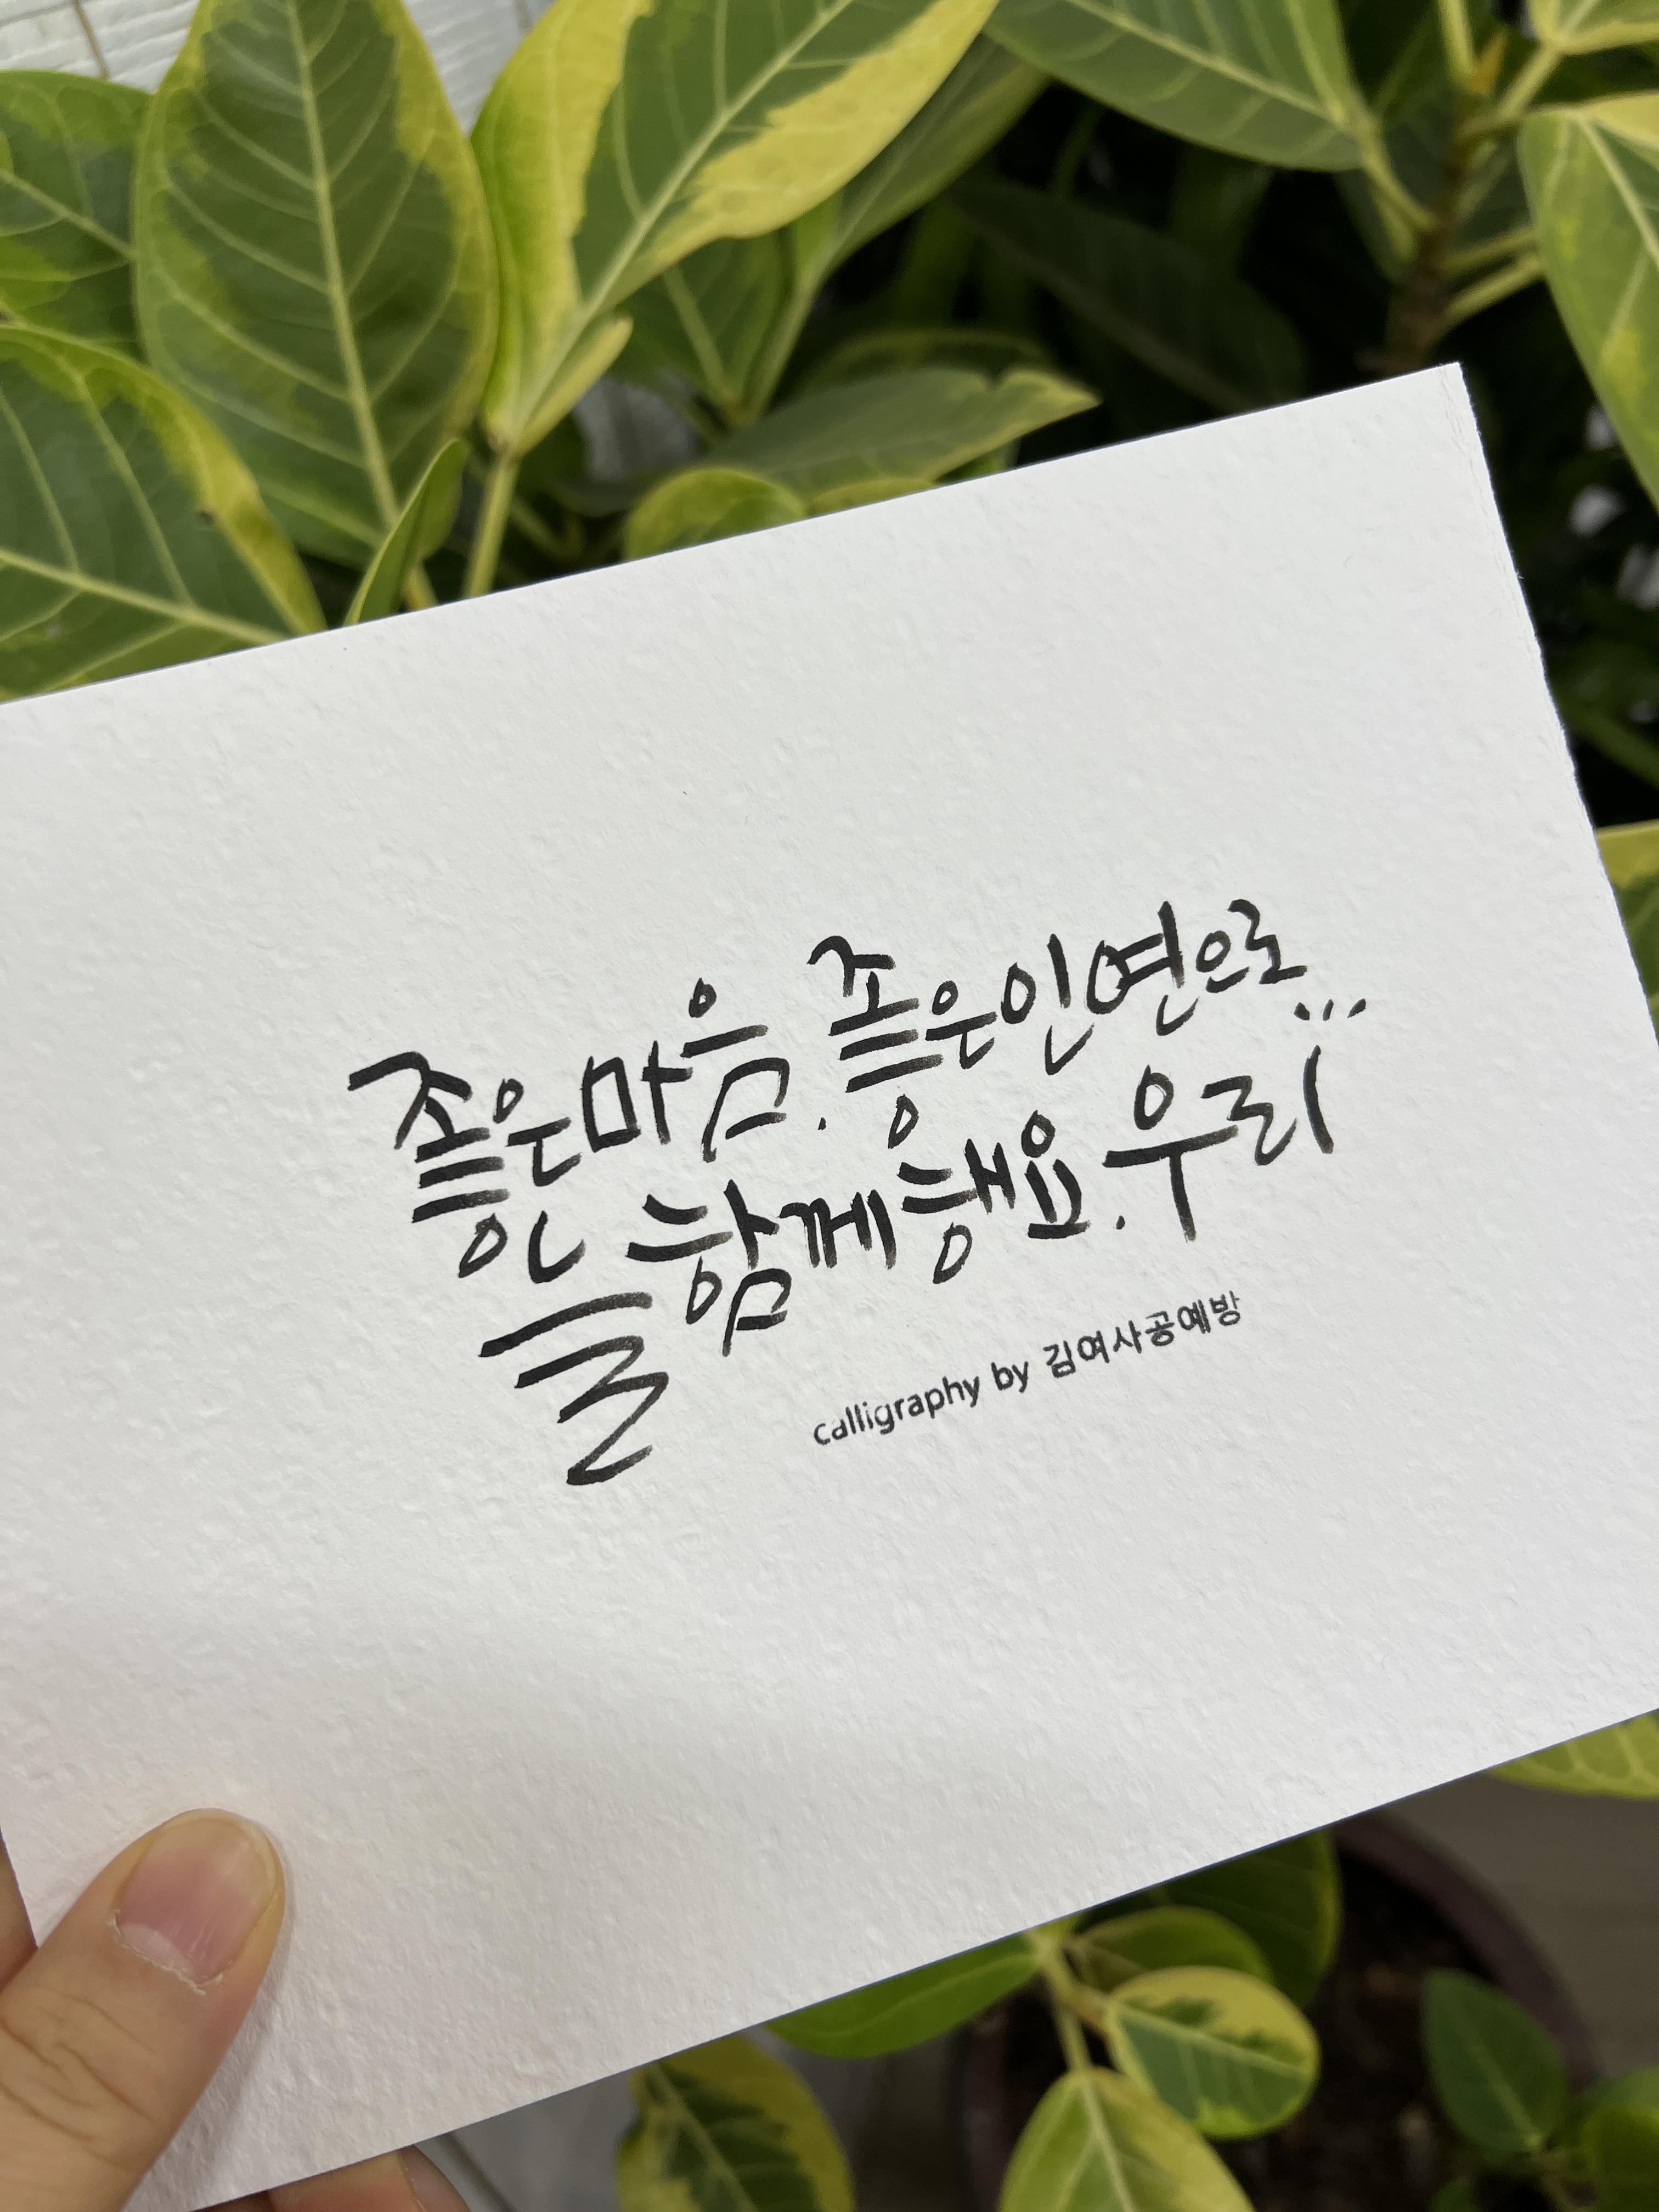 좋은마음.좋은인연으로...
늘 함께해요.우리
calligraphy by 김여사공예방